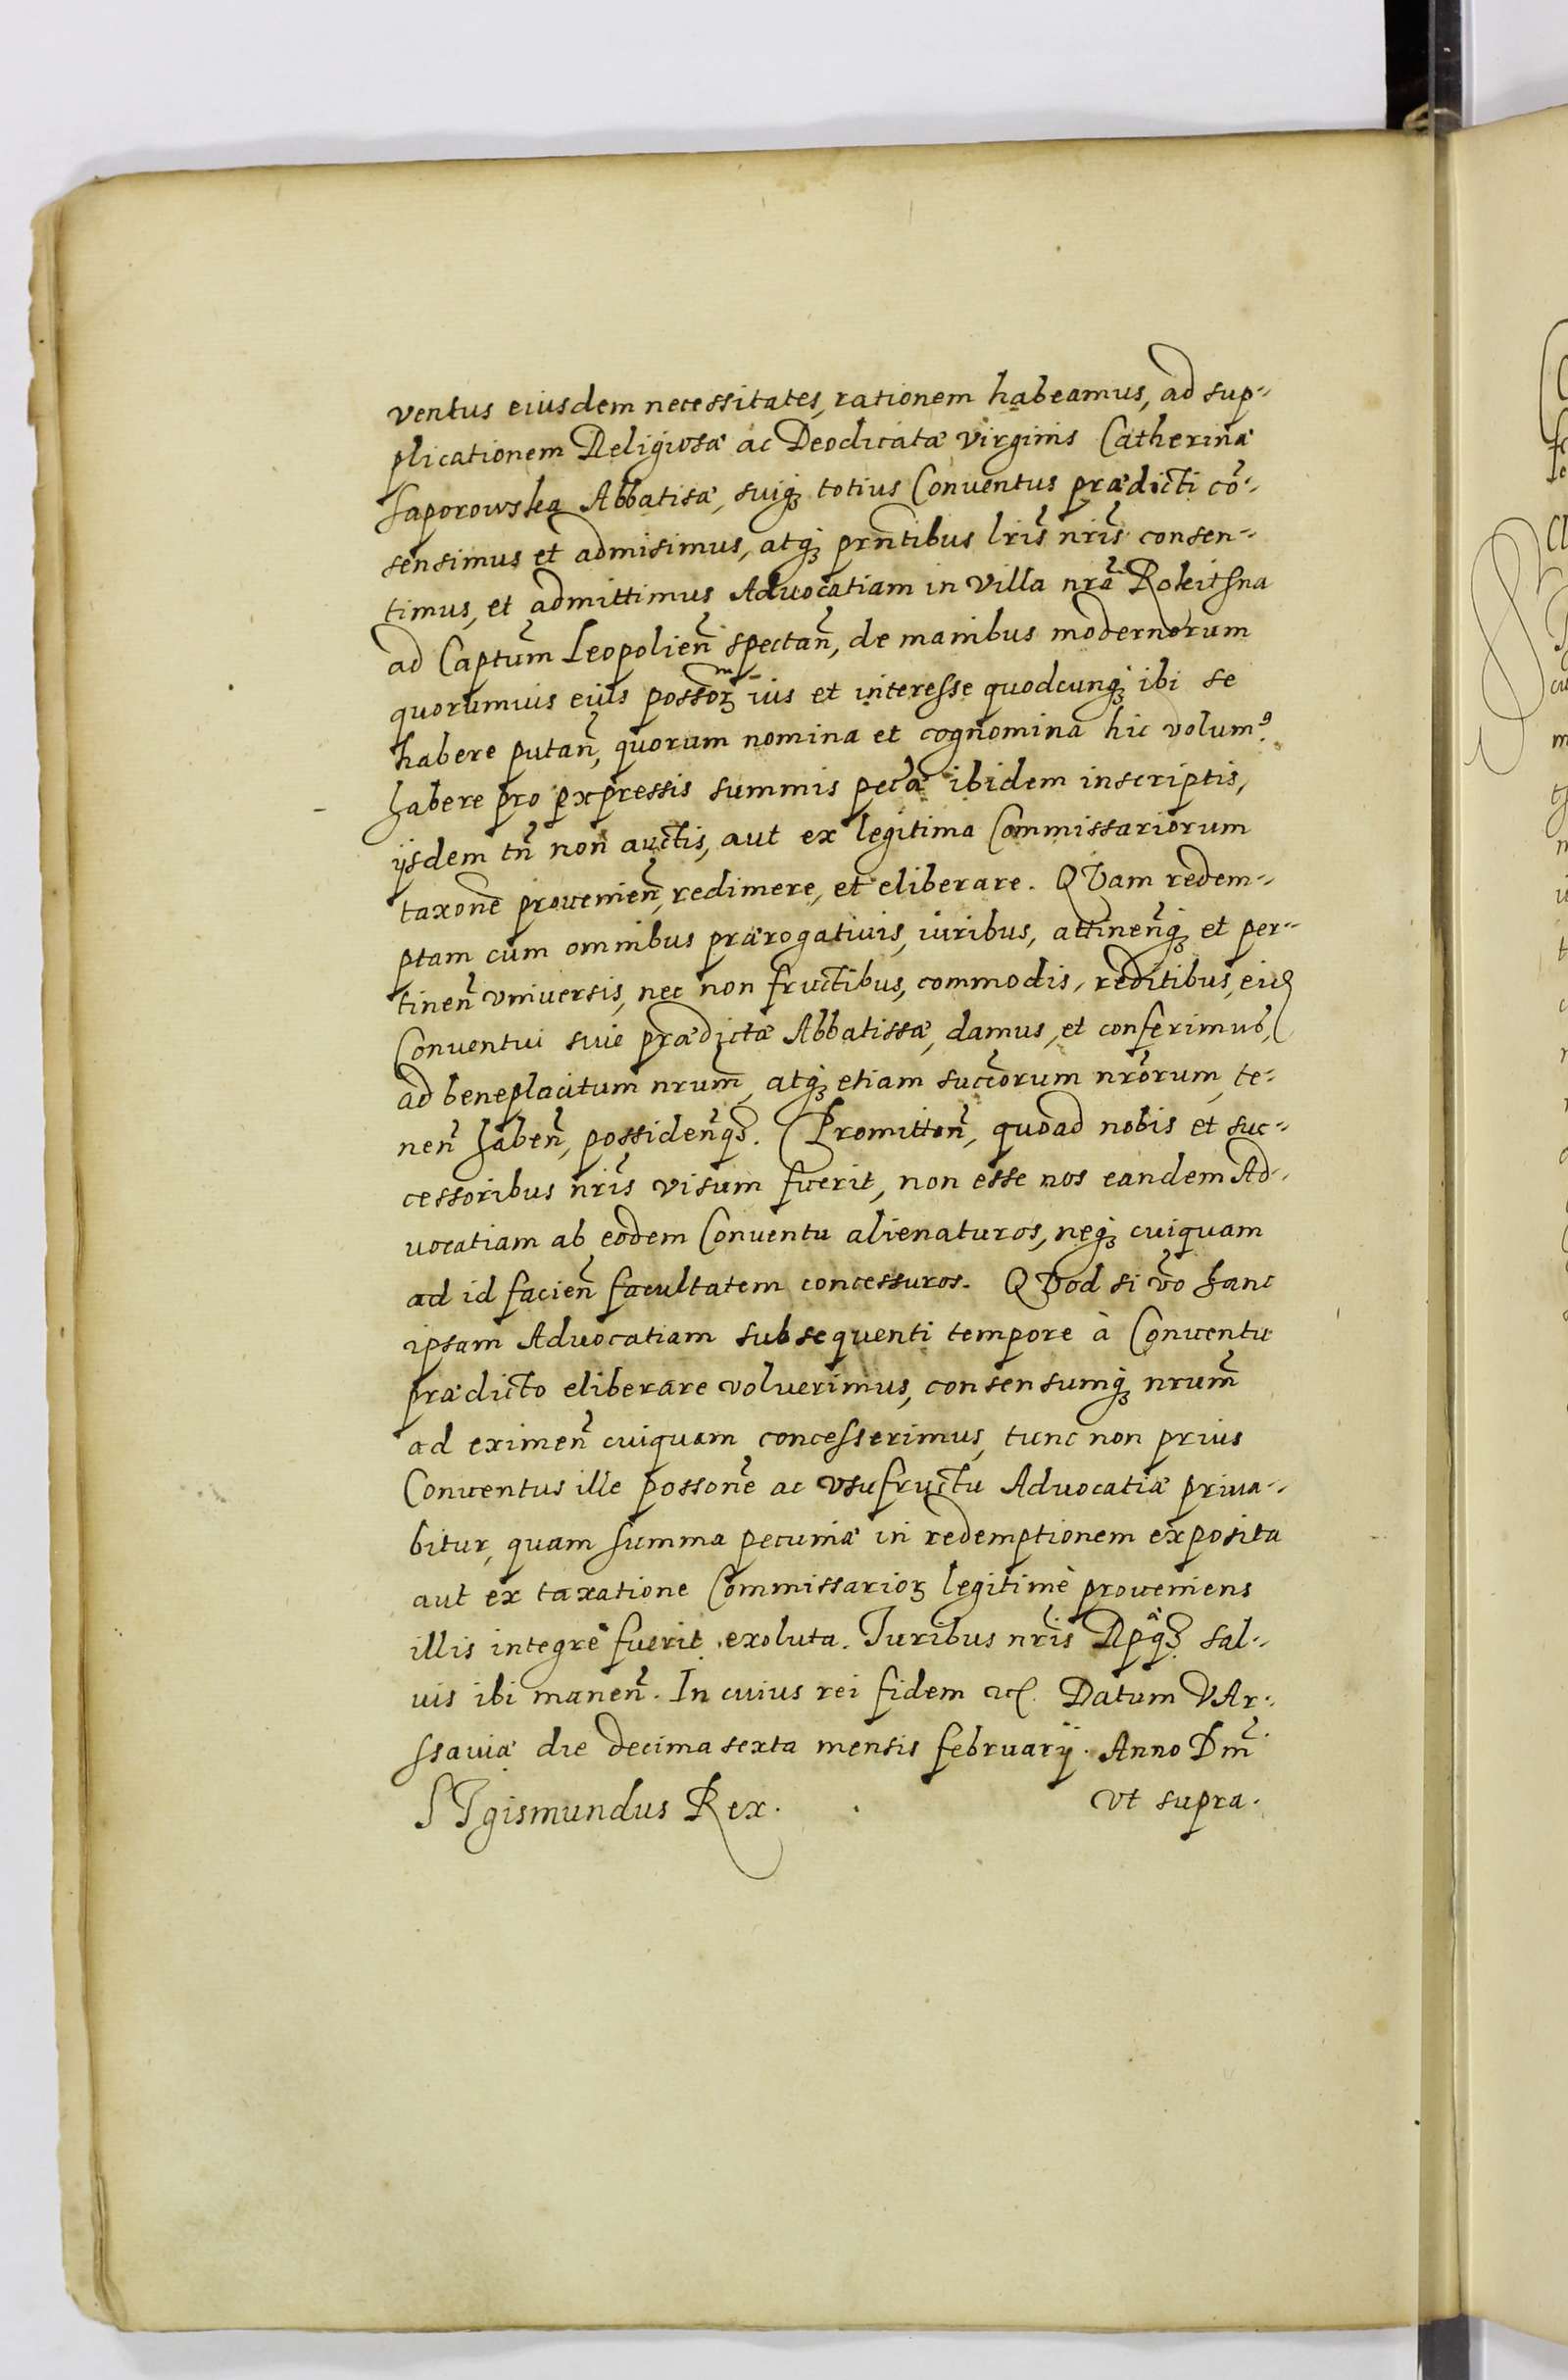 ventus eiusdem necessitates, rationem habeamus, ad sup-
plicationem Religiosæ ac Deodicatæ virginis Catherinæ
Saporowska Abbatisæ, suiq₃ totius Conventus prædicti cō-
sensimus et admisimus, atq₃ prñtibus lris̃ nris̃ consen-
timus, et admittimus Advocatiam in villa nrã Rokitsna
ad Captum̃ Leopolien̄ spectan̄, de manibus modernorum
quorumvis eius possorꝝ ius et interesse quodcunq₃ ibi se
habere putan̄, quorum nomina et cognomina hic volum⁹
habere pro expressis summis pecæ̃ ibidem inscriptis,
ijsdem tñ non auctis, aut ex legitima Commissariorum
taxonẽ provenien̄, redimere, et eliberare. QVam redem-
ptam cum omnibus prærogativis, iuribus, attinen̄q₃ et per-
tinen̄ vniversis, nec non fructibus, commodis, reditibus, eid
Conventui sive prædictæ Abbatissæ, damus, et conferimus,
ad beneplacitum nrum̃, atq₃ etiam succorum̃ nrorum̃, te-
nen̄ haben̄, possiden̄q₃. Promitten̄, quoad nobis et suc-
cessoribus nris̃ visum fuerit, non esse nos eandem Ad-
vocatiam ab eodem Conventu alienaturos, neq₃ cuiquam
ad id facien̄ facultatem concessuros. QVod si vo᷃ hanc
ipsam Advocatiam subsequenti tempore à Conventu
prædicto eliberare voluerimus, consensumq₃ nrum̃
ad eximen̄ cuiquam concesserimus, tunc non prius
Conventus ille possonẽ ac vsufructu Advocatiæ priva-
bitur, quam summa pecuniæ in redemptionem exposita
aut ex taxatione Commissarioꝝ legitimè proveniens
illis integrè fuerit exoluta. Iuribus nris̃ Rpᵃq₃ sal-
vis ibi manen̄. In cuius rei fidem &c. Datum VAr-
ssaviæ die decima sexta mensis februarij. Anno Dm̃
SIgismundus Rex. vt supra.